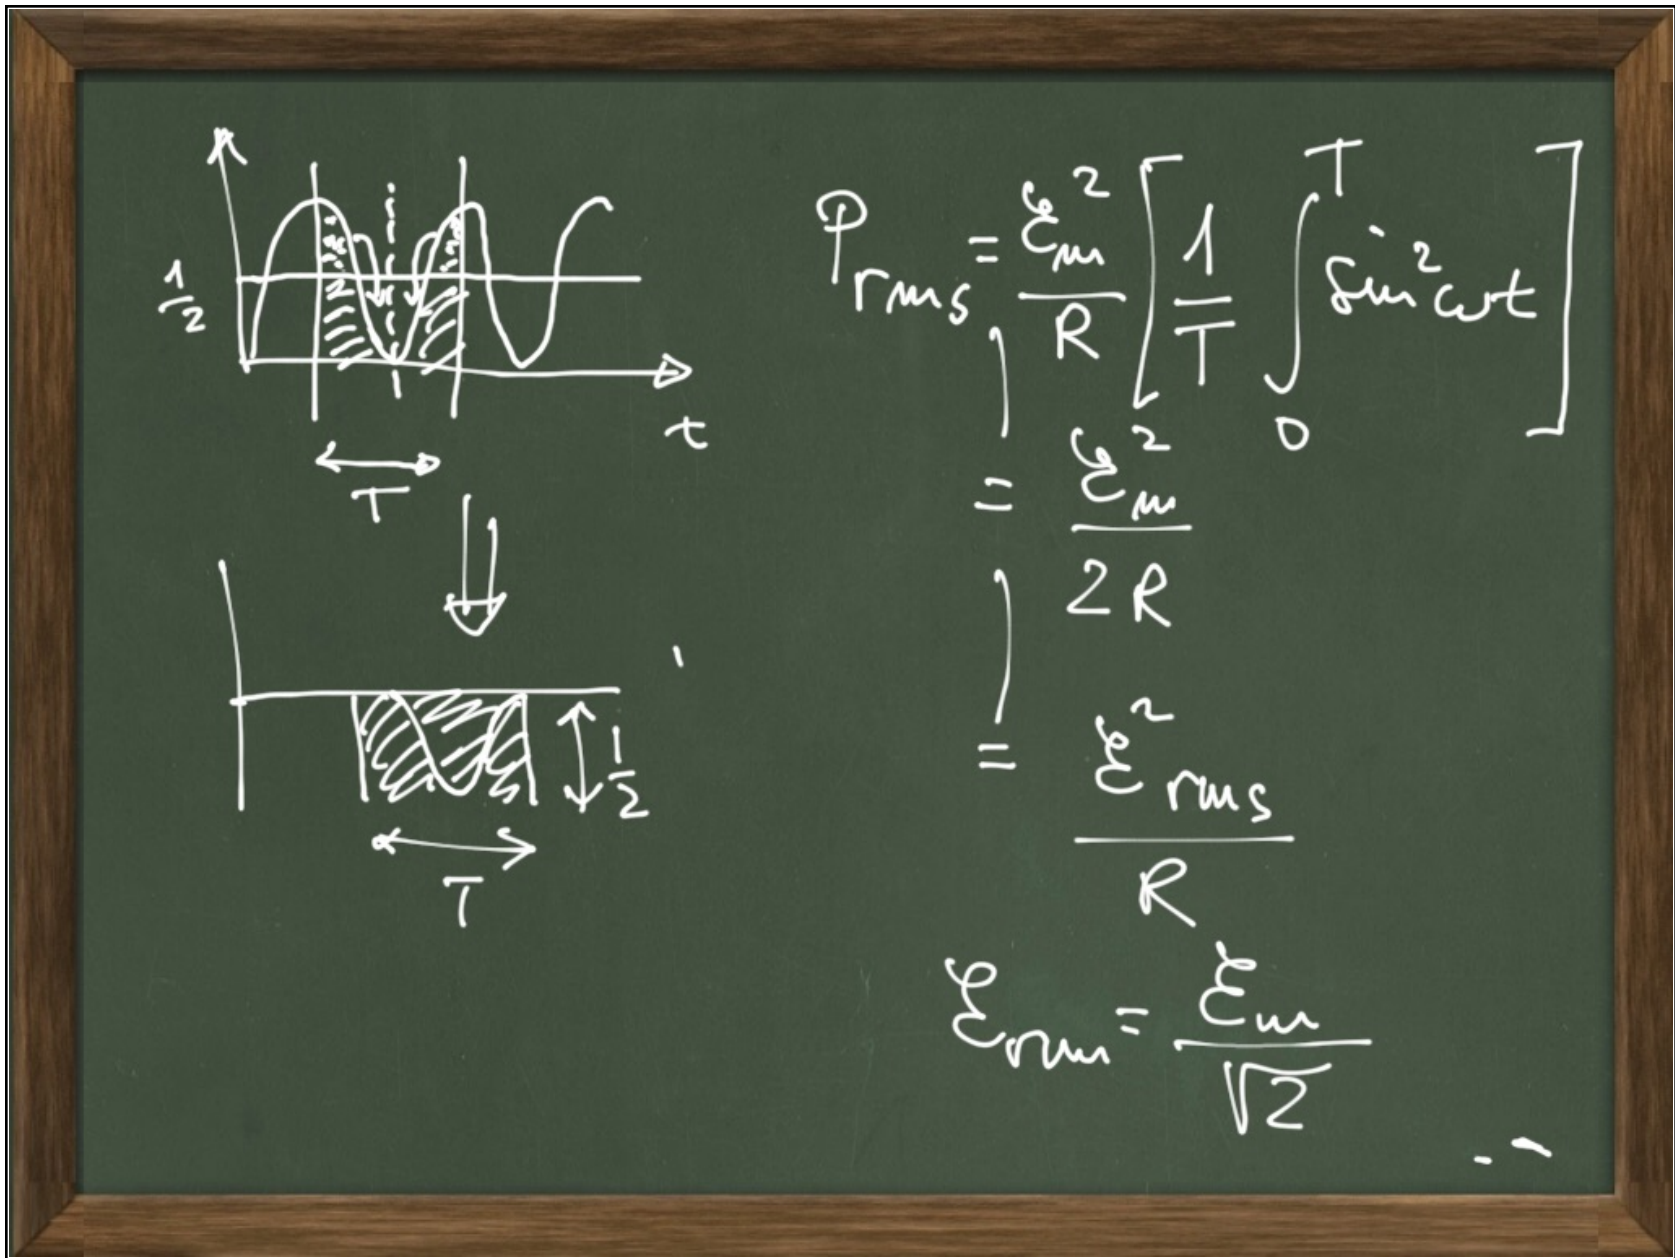 1/2
t
T
1/2
T
P_rms = ℰ_m²/R [ 1/T ∫_0^T sin²ωt ]
= ℰ_m²/2R
= ℰ²_rms/R
ℰ_rms = ℰ_m/√2